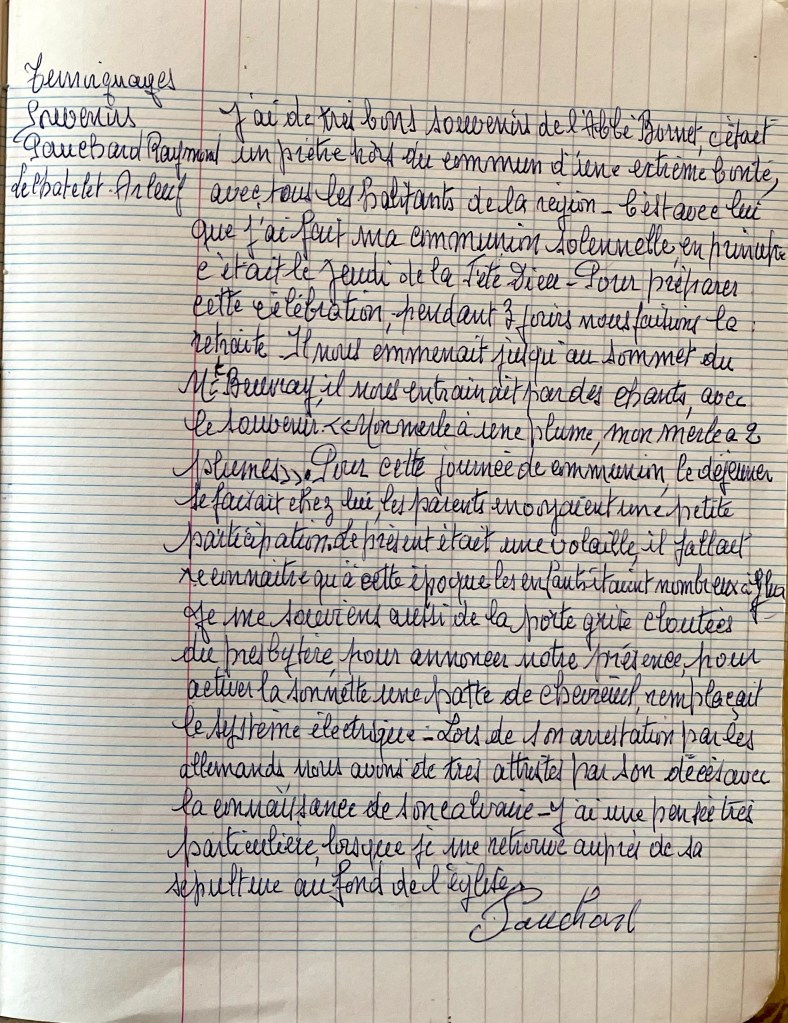 Temoignages
Souvenirs
Gauchard Raymond
le Chatelet-Arleuf
J'ai de très bons souvenirs de l'Abbé Bornet, c'était
un prêtre hors du commun d'une extrême bonté,
avec tous les habitants de la région - C'est avec lui
que j'ai fait ma communion solennelle, en principe
c'était le jeudi de la Fête Dieu - Pour préparer
cette célébration, pendant 3 jours nous faisions la
retraite Il nous emmenait jusqu'au sommet du
Mt Beuvray, il nous entrainait par des chants, avec
le souvenir << Mon merle à une plume, mon merle a 2
plumes >>. Pour cette journée de communion, le déjeuner
se faisait chez lui, les parents envoyaient une petite
participation. Le présent était une volaille, il fallait
reconnaitre qu'à cette époque les enfants étaient nombreux à
Je me souviens aussi de la porte grise cloutées
du presbytère, pour annoncer notre présence, pour
activer la sonnette une patte de chevreuil, remplaçait
le système électrique - Lors de son arrestation par les
allemands nous avons été très attristés par son décès avec
la connaissance de son calvaire - J'ai une pensée très
particulière, lorsque je me retrouve auprès de sa
sépulture au fond de l'église.
Gauchard